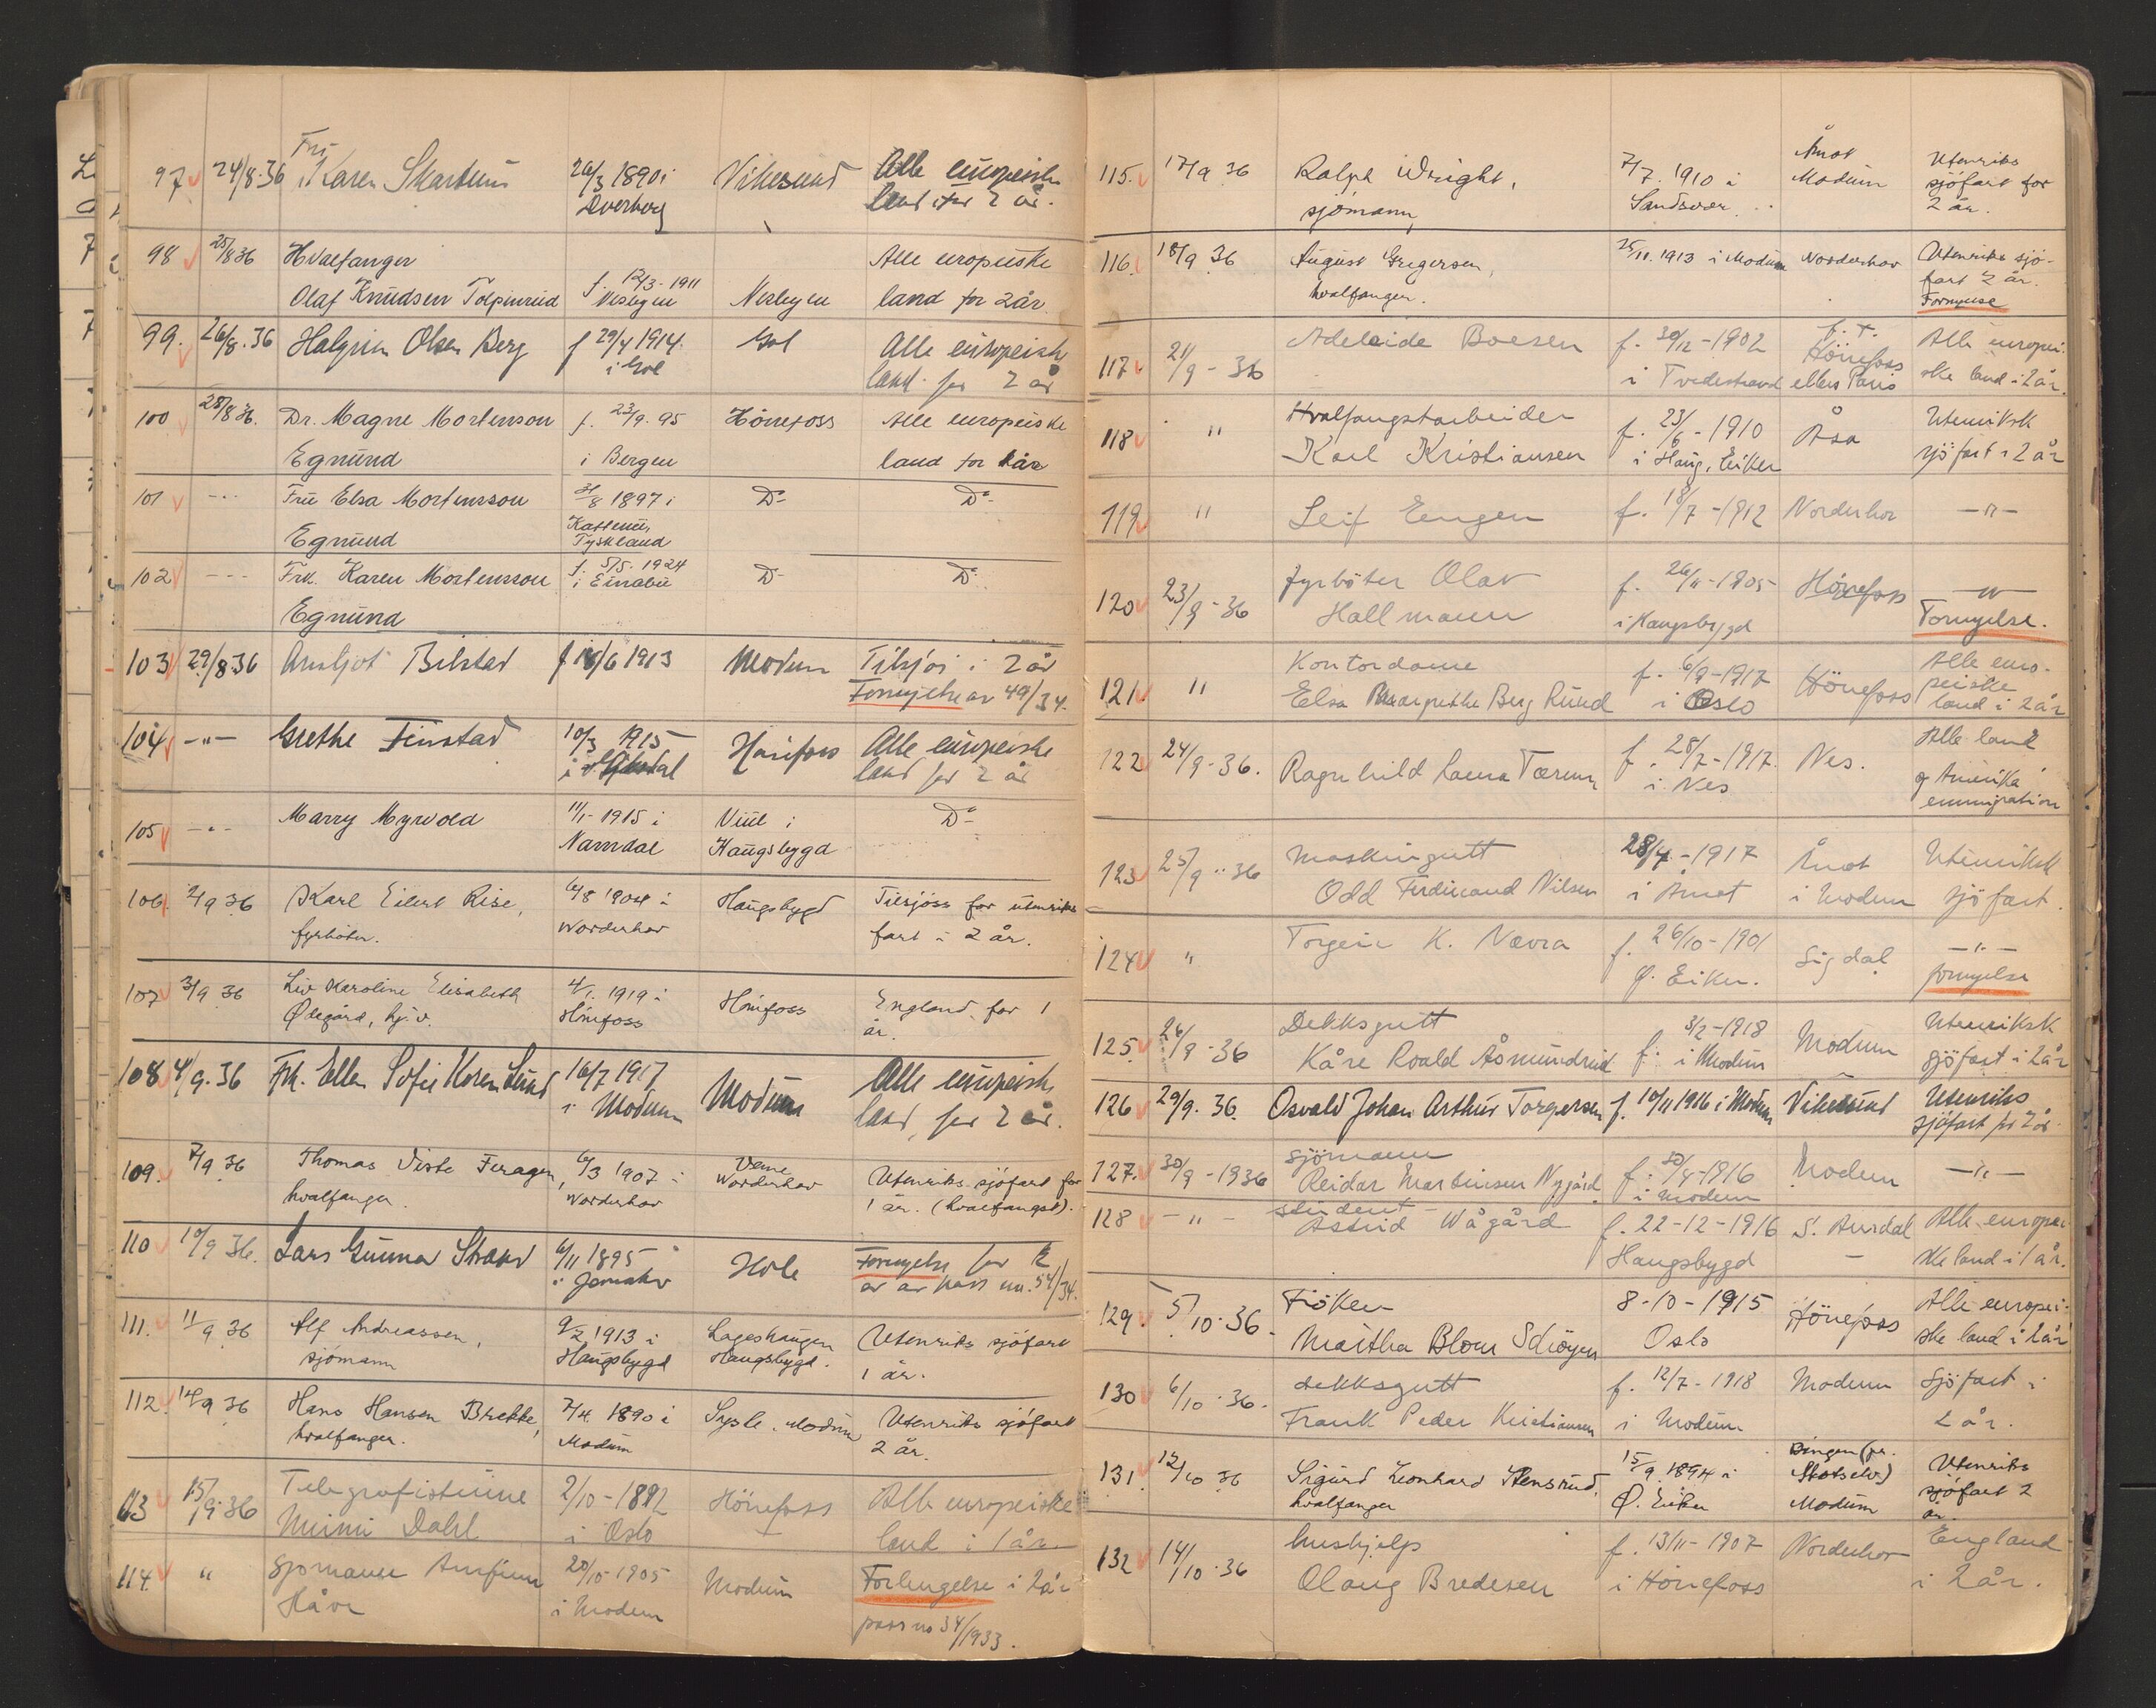 97 24/8.36 Frü Karen Skartum 26/3 1890 i Vikesund Alle europeiske
land for 2 år.
98 25/8 36 Hvalfanger Alle europeiske
Olaf Knudsen Tolpinrud f. 12/3-1911 Nesbyen Nesbyen land for 2 år.
99. 26/8.36 Halgrim Olsen Berg f 29/4 1914. Gol Alle europeiske
i Gol land for 2 år
100 28/8 36. Dr. Magne Mortenson f. 23/9.95 Hönefoss Alle europeiske
Egnund i Bergen land for 1 år
101 --- Frü Elsa Mortensson 31/8 1897 i Do- Do-
Egnund Tyskland
102 --- Frk. Karen Mortensson f. 5/5.1924 Do- Do-
Egnund i Einabu
103 29/8 36 Arnljot Bilstad f 18/6 1913 Modum Tilsjøs i 2 år
Fornyelse av 49/34.
104 -"- Grethe Finstad 10/3 1915 Hönefoss Alle europeiske
land for 2 år
105 -"- Marry Myrvold 11/1-1915 i Viul i Do-
Namdal Haugsbygd
106 2/9 36 Karl Eilert Rise, 6/8 1904 i Haugsbygd Tilsjöss for utenriks
fyrböter. Norderhov fart i 2 år.
107 3/9 36 Liv Karoline Elisabeth 4/1. 1919 i Hönefoss England for 1
Ødegård, hj.v. Hönefoss år.
108 4/9.36 Frk. Ellen Sofie Koren Lund 16/7 1917 Modum Alle europeiske
i Modum land for 2 år.
109. 7/9 36 Thomas Viste Feragen, 6/3 1907 i Veme Utenriks sjöfart for
hvalfanger. Norderhov Norderhov 1 år. (hvalfangst).
110 10/9 36. Lars Gunnar Strand 6/11 1895 Hole Fornyelse for 2
i Jevnaker år av pass nr. 54/34.
111. 11/9 36 Alf Andreassen, 9/2 1913 i Lageshaugen Utenriks sjöfart
sjömann Haugsbygd Haugsbygd. 1 år.
112. 14/9 36 Hans Hansen Brekke, 7/4 1890 i Sysle. Modum Utenriks sjöfart
hvalfanger. Modum 2 år.
113 15/9.36 Telegrafistinne 2/10-1892 Hönefoss Alle europeiske
Mimi Dahl i Oslo land i 1 år
114. " Sjömann Arnfinn 20/10-1905 Modum Forlengelse i 2 år
Håvr i Modum pass no 34/1933.
115. 17/9 36 Ralph Wright, 7/7. 1910 i Åmot Utenriks
sjömann, Sandsvær Modum sjöfart for
2 år.
116. 18/9 36 August Gregersen, 25/11. 1913 i Modum Norderhov Utenriks sjö-
hvalfanger. fart 2 år.
Fornyelse
117 21/9-36 Adeleide Boesen f. 30/12-1902 f.t. Hönefoss Alle europei-
i Tvedestrand ellers Paris ske land i 2 år.
118 " Hvalfangstarbeider f. 23/6-1910 Åsa Utenriksk
Karl Kristiansen i Haug, Eiker sjöfart i 2 år
119 " Leif Eengen f. 18/7-1912 Norderhov -"-
120 23/9-36 Fyrböter Olav f. 26/11-1905 Hönefoss -"-
Hallmann i Haugsbygd Fornyelse.
121. " Kontordame f. 6/9-1917 Hönefoss Alle euro-
Elsa Margrethe Berg Rund i Oslo peiske
land i 2 år
122 24/9-36. Ragnhild Laura Tærum f. 28/7-1917. Nes. Alle land
i Nes og Amerika
emmigration
123 25/9-36 Maskingutt 28/4-1917 Åmot Utenriksk
Odd Ferdinand Nilsen i Åmot i Modum sjöfart.
124 " Torgeir K. Nævra f. 26/10-1901 Sigdal -"-
Ø. Eiker. fornyelse
125. 26/9-36 Dekksgutt 3/2-1918 Modum Utenriksk
Kåre Roald Åsmundrud f. i Modum sjöfart i 2 år
126 29/9.36. Osvald Johan Arthur Torgersen f. 10/11 1916 i Modum Vikesund Utenriks
sjöfart for 2 år.
127. 30/9-1936 Sjömann f. 30/4-1916 Modum -"-
Reidar Martinsen Nygård i Modum
128 -"- student f. 22-12-1916 S. Aurdal Alle europei-
Astrid Wågård Haugsbygd ske land i 1 år.
129 5/10.36. Fröken 8-10-1915 Hönefoss Alle europei-
Martha Blom Schöyen Oslo ske land i 2 år
130 6/10.36. Dekksgutt f. 12/7-1918 Modum Sjöfart i
Frank Peder Kristiansen i Modum 2 år.
131. 12/10 36 Sigurd Leonhard Stensrud, 15/9 1894 i (pr. Utenriks
hvalfanger Ø. Eiker Skotselv) sjöfart 2
Modum år.
132 14/10.36 hushjelp f. 13/11-1907 Norderhov England
Olaug Bredesen i Hönefoss i 2 år.